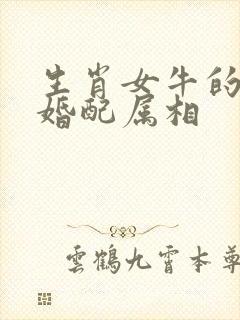 生肖女牛的
婚配属相
雲鶴九霄本尊